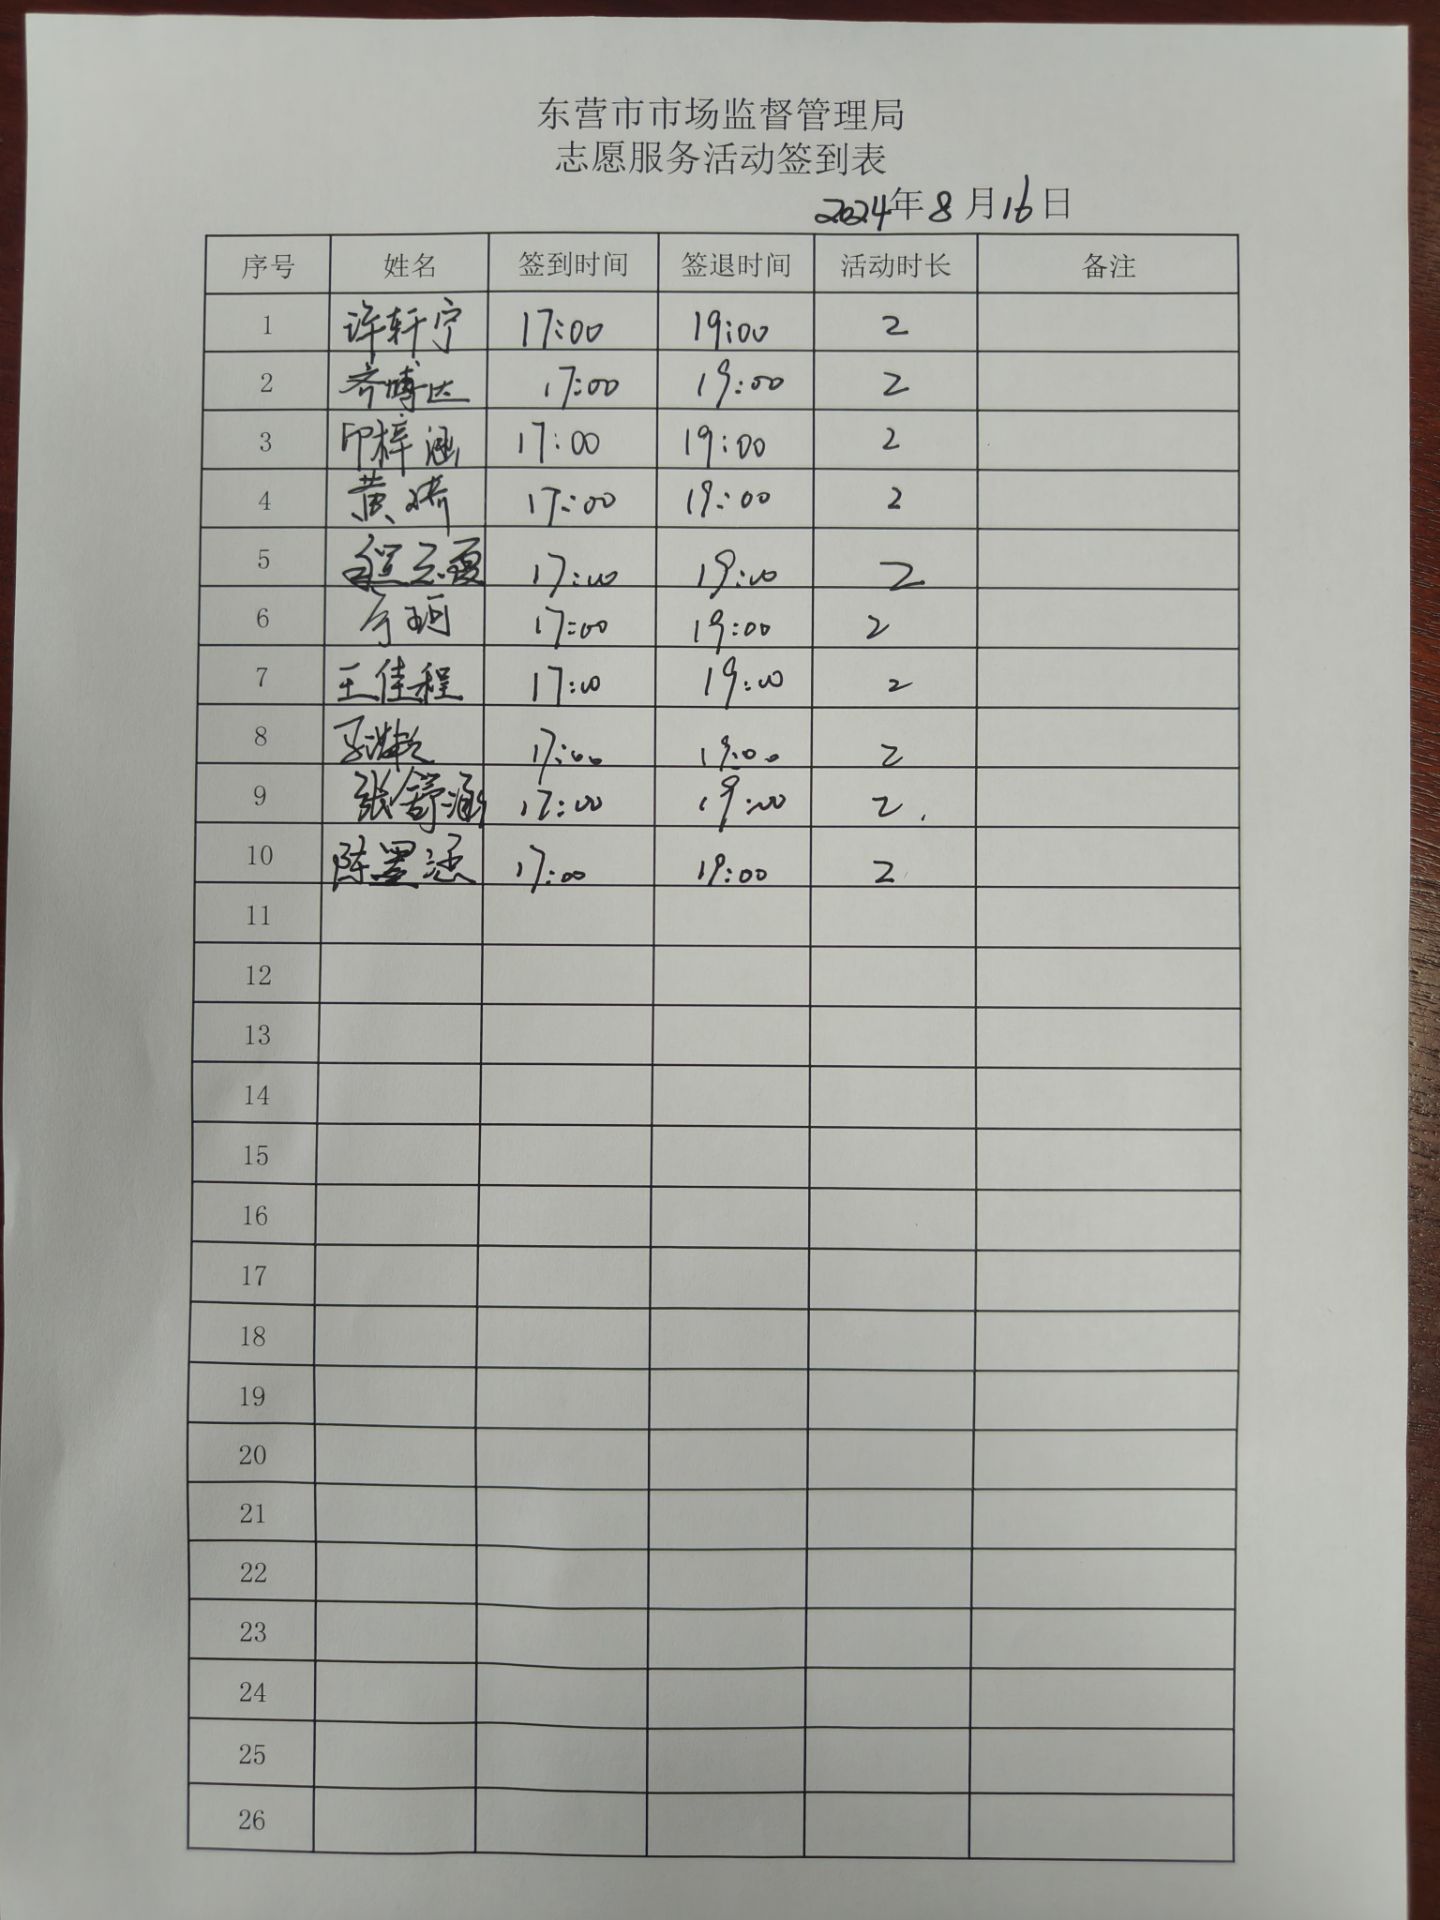 东营市市场监督管理局
志愿服务活动签到表
2024年8月16日
序号 姓名 签到时间 签退时间 活动时长 备注
1 许轩宁 17:00 19:00 2
2 齐博达 17:00 19:00 2
3 印梓涵 17:00 19:00 2
4 黄 17:00 19:00 2
5 17:00 19:00 2
6 17:00 19:00 2
7 王佳程 17:00 19:00 2
8 17:00 19:00 2
9 张舒涵 17:00 19:00 2
10 陈 涵 17:00 19:00 2
11
12
13
14
15
16
17
18
19
20
21
22
23
24
25
26